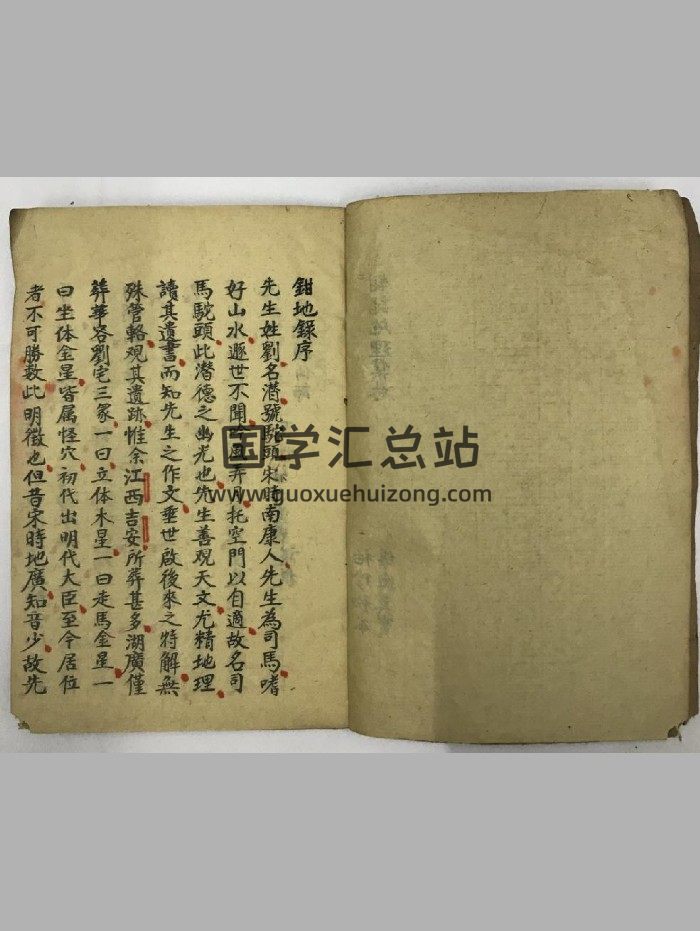 鉗地錄序
先生姓劉名潛號駝頭宋時南康人先生為司馬嗜
好山水遯世不聞風弄月托空門以自適故名司
馬駝頭此潛德之幽光也先生善观天文尤精地理
讀其遺書而知先生之作文垂世啟後來之特解無
殊管輅观其遺跡惟余江西吉安所葬甚多湖廣僅
葬華容劉宅三冢一曰立体木星一曰走馬金星一
曰坐体金星皆属怪穴初代出明代大臣至今居位
者不可勝数此明徵也但昔宋時地廣知音少故先
国学汇总站
www.guoxuehuizong.com